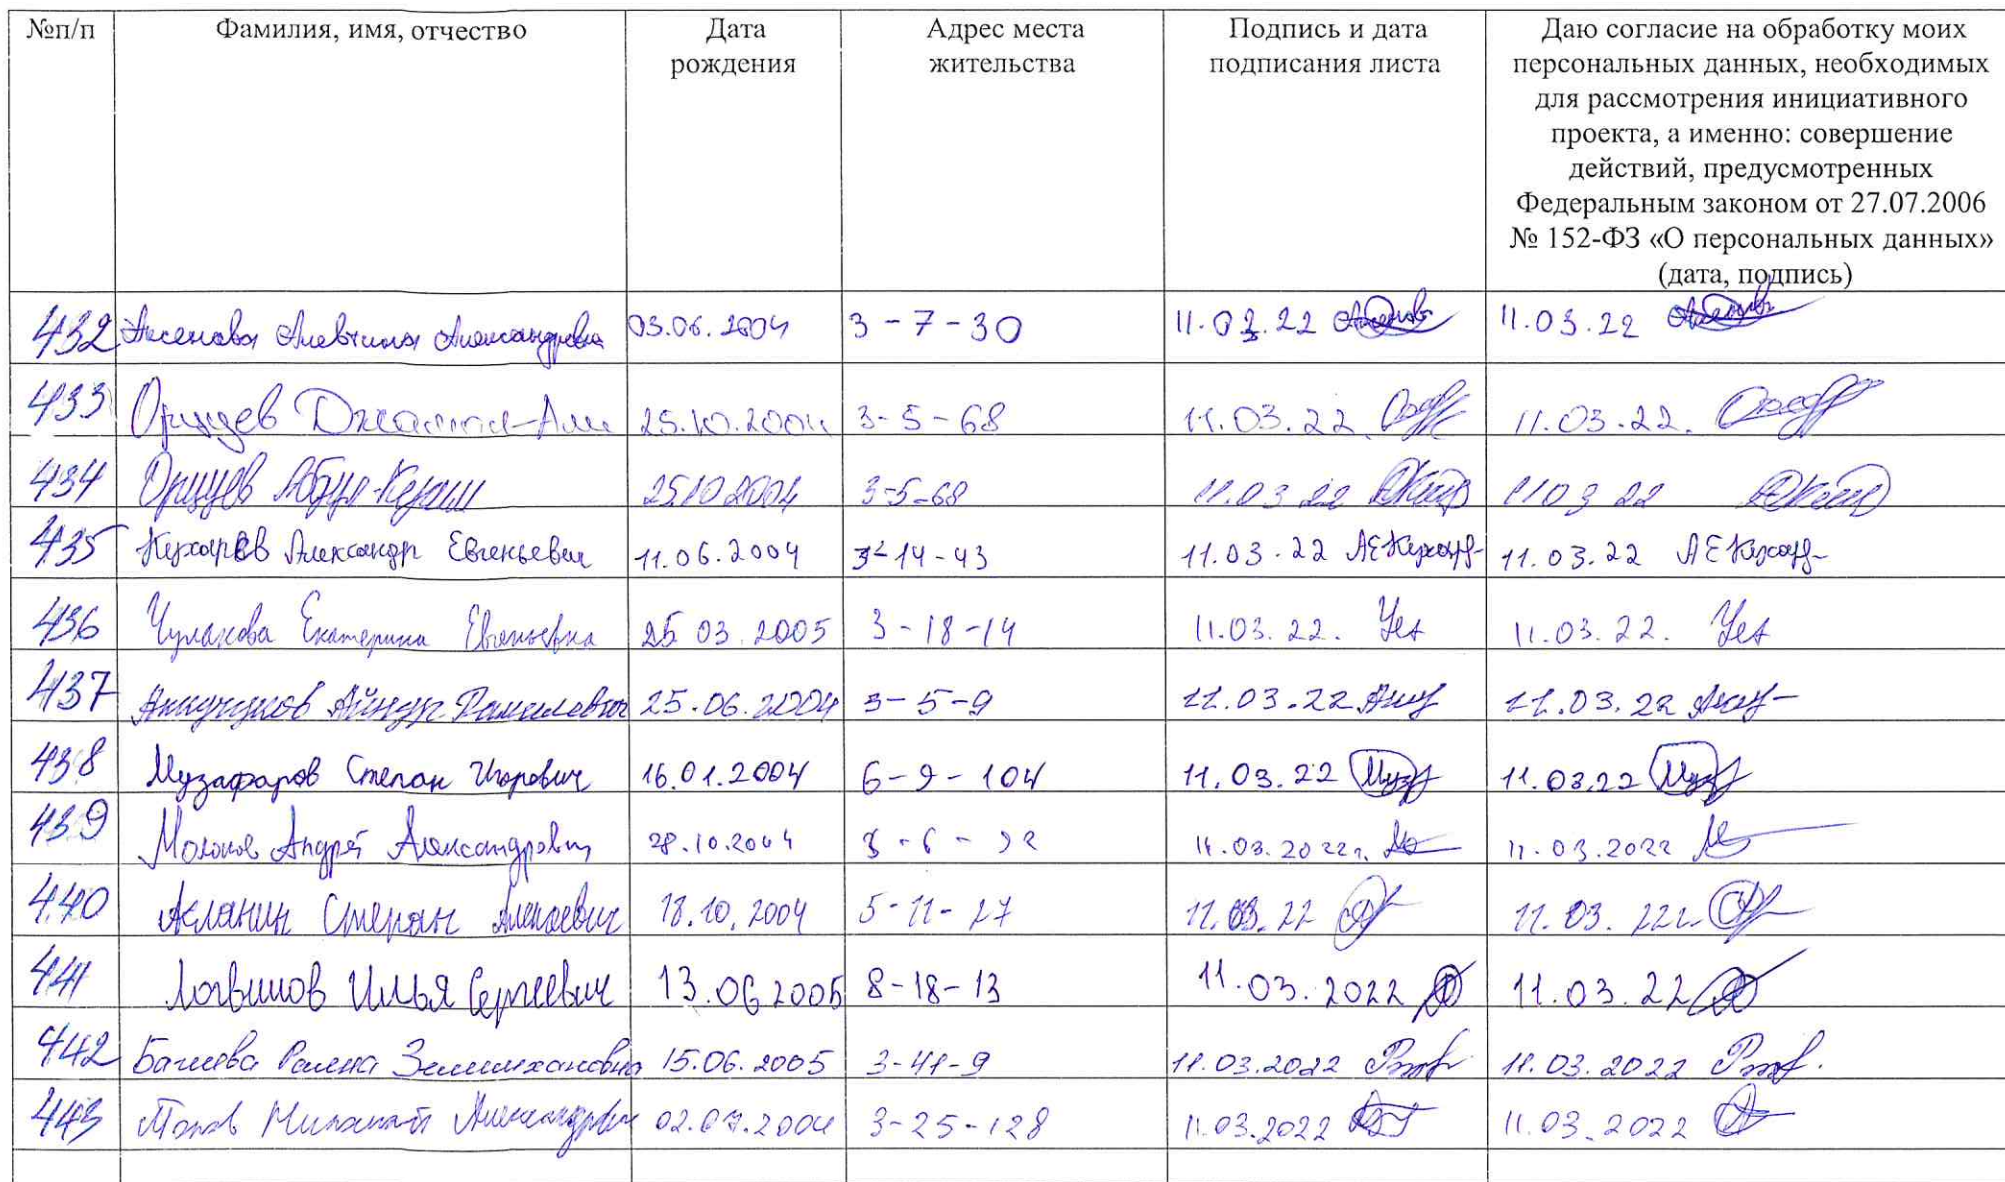 №п/п Фамилия, имя, отчество Дата рождения Адрес места жительства Подпись и дата подписания листа Даю согласие на обработку моих персональных данных, необходимых для рассмотрения инициативного проекта, а именно: совершение действий, предусмотренных Федеральным законом от 27.07.2006 № 152-ФЗ «О персональных данных» (дата, подпись)
432 Аксенова Алевтина Александровна 03.06.2004 3-7-30 11.03.22 11.03.22
433 Орцуев 25.10.2004 3-5-68 11.03.22 11.03.22.
434 Орцуев Абдул-Керим 25.10.2004 3-5-68 11.03.22 11.03.22
435 Александр Евгеньевич 11.06.2004 3-14-43 11.03.22 11.03.22
436 Чулакова Екатерина Евгеньевна 25.03.2005 3-18-14 11.03.22. 11.03.22.
437 Айнур 25.06.2004 3-5-9 11.03.22 11.03.22
438 Музафаров Степан Игоревич 16.01.2004 6-9-104 11.03.22 11.03.22
439 Андрей Александрович 28.10.2004 11.03.2022г. 11.03.2022
440 Асланин Степан Алексеевич 18.10.2004 5-11-27 11.03.22 11.03.22г.
441 Логвинов Илья Сергеевич 13.06.2005 8-18-13 11.03.2022 11.03.22
442 Залимхановна 15.06.2005 3-41-9 11.03.2022 11.03.2022
443 Александрович 3-25-128 11.03.2022 11.03.2022